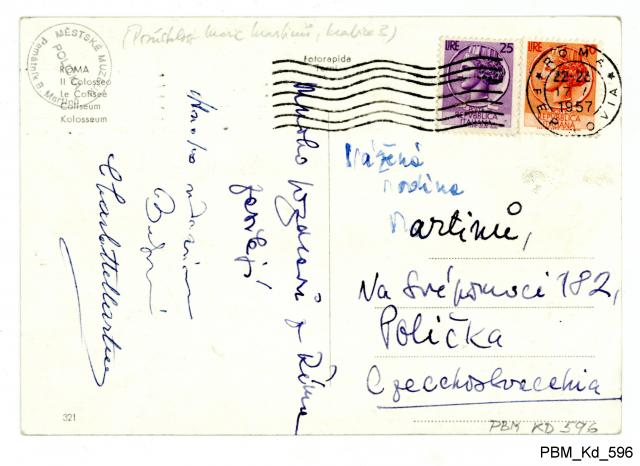 (Pozůstalost Marie Martinů, krabice 3)
MĚSTSKÉ MUZEUM
POLIČKA
Památník B. Martinů
ROMA
Il Colosseo
Le Colisée
Coliseum
Kolosseum
Fotorapida
Terni
LIRE 25
REPVBBLICA
ITALIANA
LIRE
REPVBBLICA
ITALIANA
ROMA
22-23
17
1957
FERROVIA
Mnoho pozdravů z Říma
posílají
Bohuš
Charlotte Martinu
Vážená
rodina
Martinů,
Na Svépomoci 182,
Polička
Czecchoslovacchia
321
PBM KD 596
PBM_Kd_596